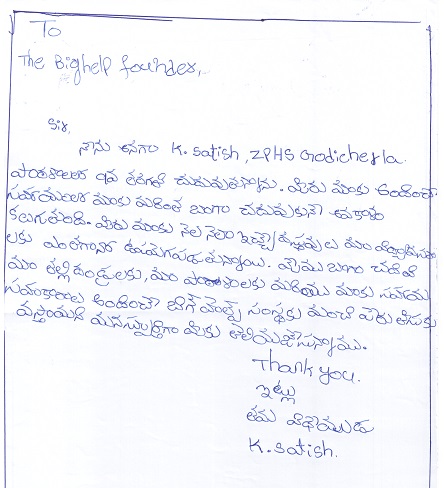 To
The Bighelp founder,
Sir,
నాను అనగా K. Satish, ZPHS Godicherla.
పాఠశాలలో 9వ తరగతి చదువుతున్నాను. మీరు మాకు అందించే
సహాయం మాకు మరింత బాగా చదువుకునే అవకాశం
కలుగుతుంది. మీరు మాకు నెల నెలా ఇచ్చే డబ్బులు మా
లకు ఎంతగానో ఉపయోగపడుతున్నాయి. మేము బాగా చదివి
మా తల్లిదండ్రులకు, మా పాఠశాలకు మరియు మాకు సహాయ
సహకారాలు అందించే బిగ్ హెల్ప్ సంస్థకు మంచి పేరు తీసుకు
వస్తామని మనస్ఫూర్తిగా మీకు తెలియజేసున్నాము.
Thank you.
ఇట్లు
తమ విధేయుడు
K. Satish.